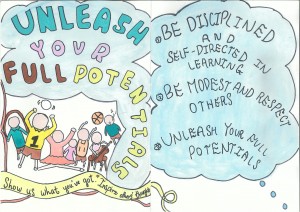 UNLEASH
YOUR
FULL POTENTIALS
1
Show us what you've got.
BE DISCIPLINED
AND
SELF-DIRECTED IN
LEARNING
BE MODEST AND RESPECT
OTHERS
UNLEASH YOUR FULL
POTENTIALS